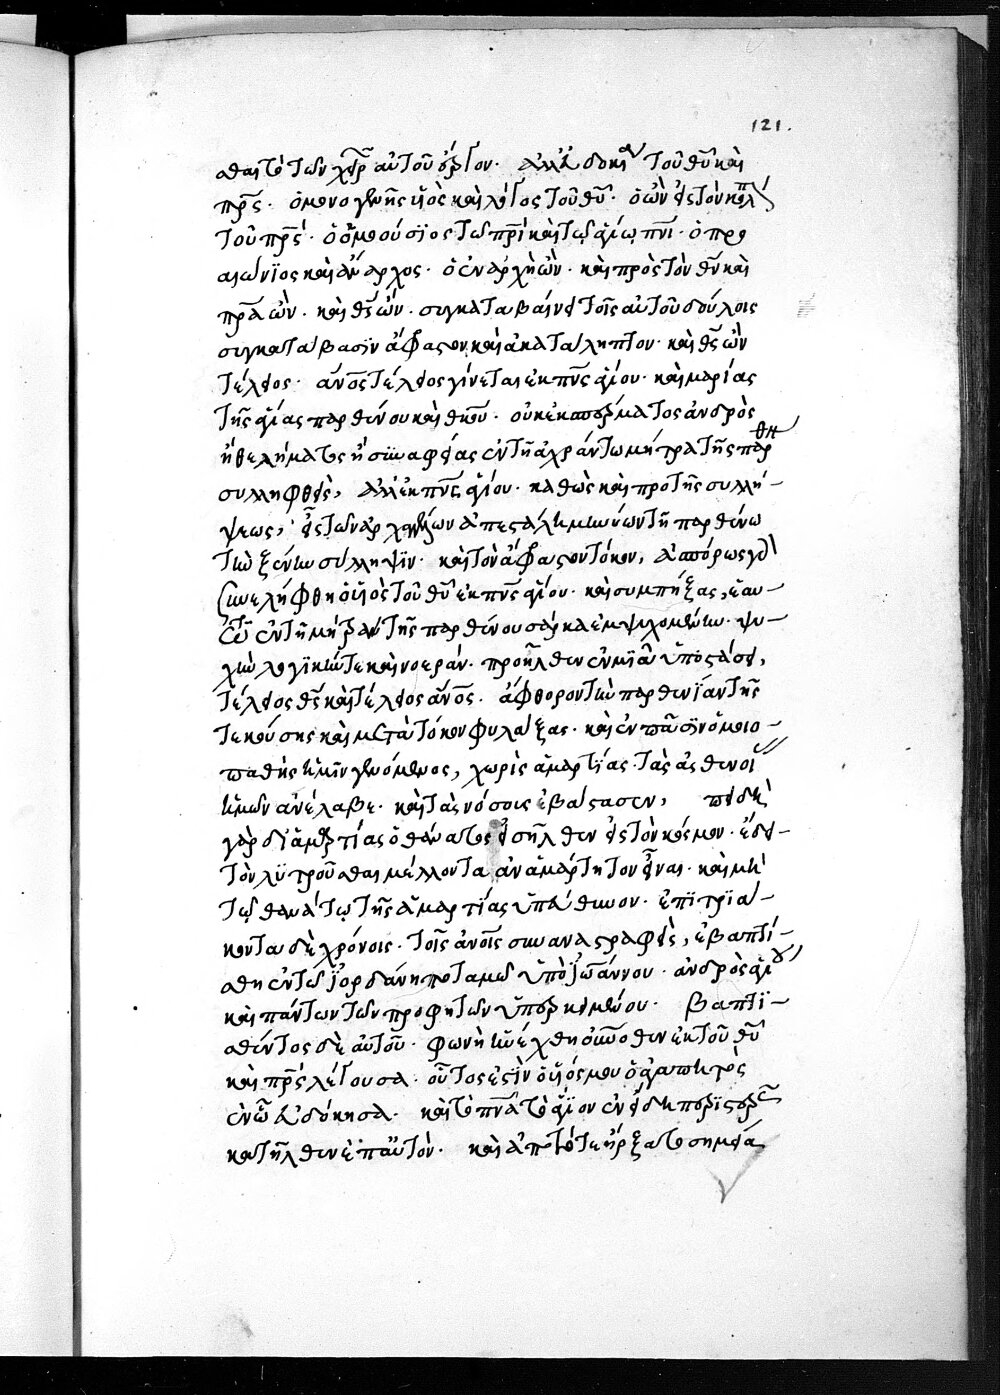 121.
σθαι τὸ τῶν χειρῶν αὐτοῦ ἔργον. ἀλλ' εὐδοκία τοῦ θυ καὶ
πρς. ὁ μονογενὴς υἱὸς καὶ λόγος τοῦ θυ. ὁ ὢν εἰς τὸν κόλπ
τοῦ πρς. ὁ ὁμοούσϊος τῶ πρι καὶ τῷ ἁγίῳ πνι. ὁ προ
αιώνϊος καὶ ἄναρχος. ὁ ἐν ἀρχῆ ὢν. καὶ πρὸς τὸν θν καὶ
πρα ὢν. καὶ θς ὤν. συγκαταβαίνει τοῖς αὐτοῦ δούλοις
συγκατάβασϊν ἄφαστον καὶ ἀκατάληπτον. καὶ θς ὢν
τέλειος. ἄνος τέλειος γίνεται ἐκ πνς ἁγίου. καὶ μαρίας
τῆς ἁγίας παρθένου καὶ θκου. οὐκ ἐκ σπέρματος ἀνδρὸς
ἢ θελήματος ἢ συναφείας ἐν τῆ ἀχράντω μήτρα τῆς παρθ
συλληφθεὶς, ἀλλ' ἐκ πνς ἁγίου. καθὼς καὶ πρὸ τῆς συλλή-
ψεως, εἷς τῶν ἀρχαγγέλων ἀπεστάλη μηνύων τῆ παρθένω
τὴν ξένην σύλληψϊν. καὶ τὸν ἄφραστον τόκον, ἀσπόρως γὰρ
συνελήφθη ὁ υἱὸς τοῦ θυ ἐκ πνς ἁγίου. καὶ συμπήξας, ἑαυ-
τῶ ἐν τῆ μήτρα τῆς παρθένου σάρκα ἐμψυχομένην. ψυ-
χὴν λογϊκήν τε καὶ νοεράν. προῆλθεν ἐν μϊᾶ ὑποστάσει,
τέλειος θς καὶ τέλειος ἄνος. ἄφθορον τὴν παρθενΐαν τῆς
τεκούσης καὶ μετὰ τόκον φυλάξας. καὶ ἐν πᾶσϊν ὁμοιο-
παθὴς ἡμῖν γενόμενος, χωρὶς ἁμαρτΐας. τὰς ἀσθενείας
ἡμῶν ἀνέλαβε. καὶ τὰς νόσους ἐβάστασεν, ἐπειδὴ
γὰρ δι' ἁμαρτίας ὁ θάνατος εἰσῆλθεν εἰς τὸν κόσμον. ἔδει-
τὸν λϋτροῦσθαι μέλλοντα ἀναμάρτητον εἶναι. καὶ μὴ
τῷ θανάτῳ τῆς ἁμαρτΐας ὑπεύθυνον. ἐπὶ τρϊά-
κοντα δὲ χρόνοις. τοῖς ἀνοις συναναστραφεὶς, ἐβαπτί-
σθη ἐν τῶ ϊορδάνη ποταμῶ ὑπὸ ϊωάννου. ἀνδρὸς ἁγίου
καὶ πάντων τῶν προφητῶν ὑπερκειμένου. βαπτϊ-
σθέντος δὲ αὐτοῦ. φωνὴ ἠνέχθη οὐνοθεν ἐκ τοῦ θυ
καὶ πρς λέγουσα. οὗτος ἐστὶν ὁ υἱός μου ὁ ἀγαπητὸς
ἐν ὧ εὐδόκησα. καὶ τὸ πνα τὸ ἅγϊον ἐν εἴδει περϊστερᾶς
κατῆλθεν ἐπ αὐτὸν. καὶ ἀπὸ τότε ἤρξατο σημεῖα